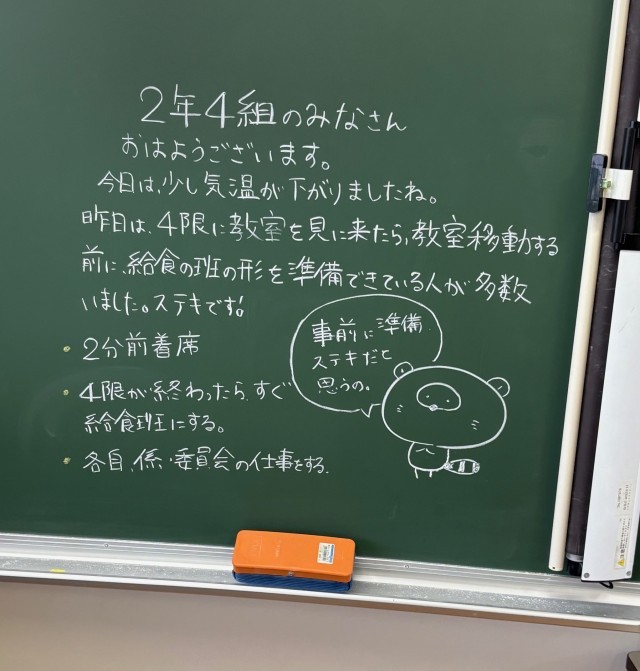 2年4組のみなさん
おはようございます。
今日は、少し気温が下がりましたね。
昨日は、4限に教室を見に来たら、教室移動する
前に、給食の班の形を準備できている人が多数
いました。ステキです!
・2分前着席
・4限が終わったら、すぐ
給食班にする。
・各自、係・委員会の仕事をする.
事前に準備
ステキだと
思うの。